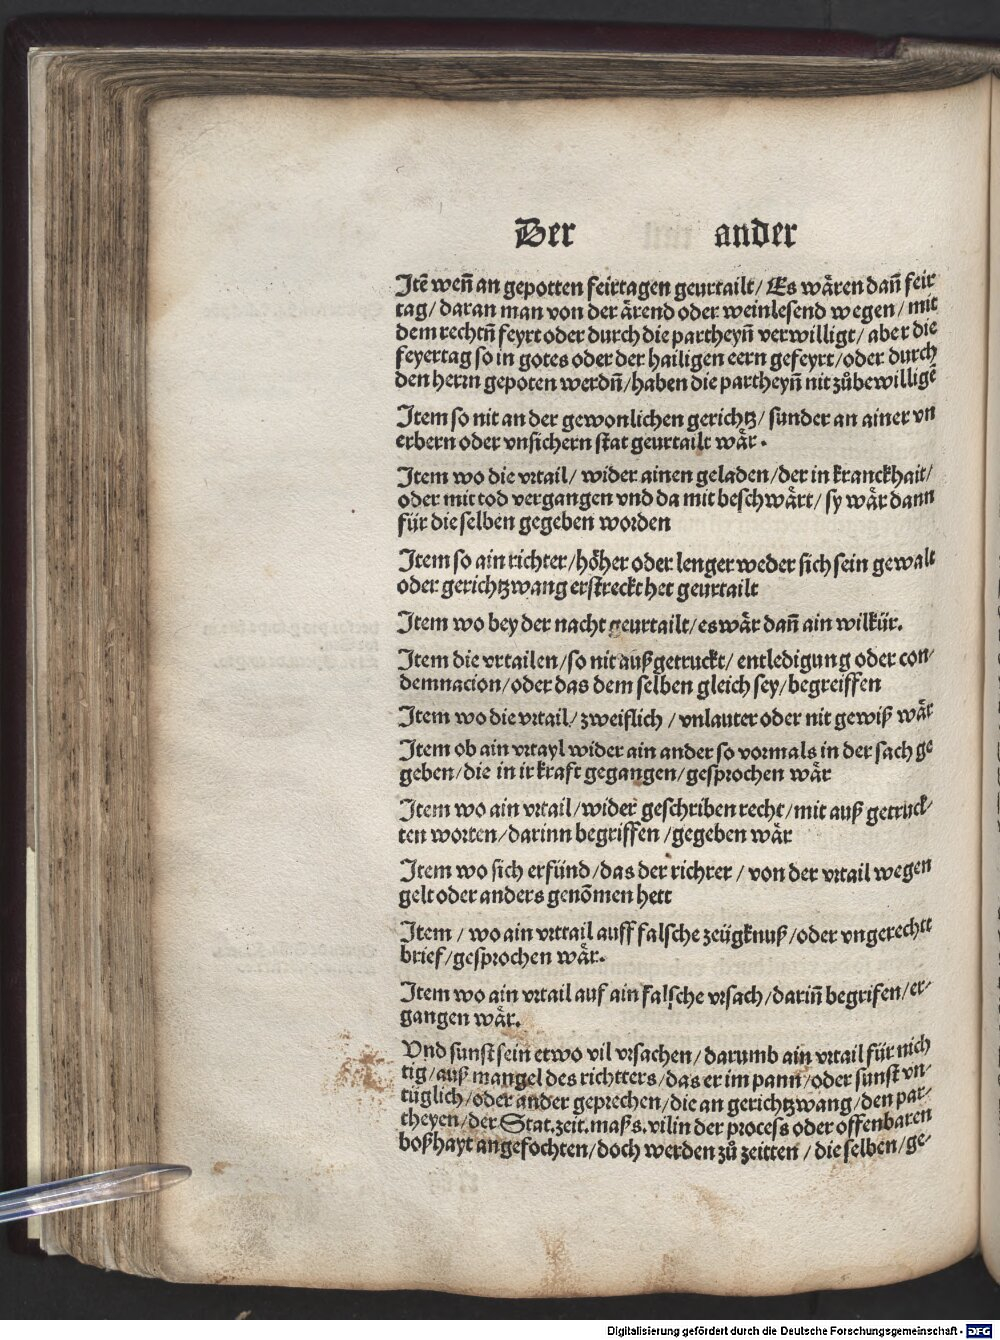 Der ander
Itē wen̄ an gepotten feirtagen geurtailt/ Es wären dan̄ feir
tag/ daran man von der ärend oder weinlesend wegen/ mit
dem rechtn̄ feyrt oder durch die partheyn̄ verwilligt/ aber die
feyertag so in gotes oder der hailigen eern gefeyrt/oder durch
den herrn gepoten werdn̄/haben die partheyn̄ nit zůbewilligē
Item so nit an der gewonlichen gerichtz/ sunder an ainer vn
erbern oder vnsichern stat geurtailt wär.
Item wo die vrtail/ wider ainen geladen/der in kranckhait/
oder mit tod vergangen vnd da mit beschwärt/ sy wär dann
für die selben gegeben worden
Item so ain richter/höher oder lenger weder sich sein gewalt
oder gerichtzwang erstreckt het geurtailt
Item wo bey der nacht geurtailt/es wär dan̄ ain wilkür.
Item die vrtailen/so nit außgetruckt/ entledigung oder con-
demnacion/oder das dem selben gleich sey/begreiffen
Item wo die vrtail/ zweiflich / vnlauter oder nit gewiß wär
Item ob ain vrtayl wider ain ander so vormals in der sach ge
geben/die in ir kraft gegangen/gesprochen wär
Item wo ain vrtail/wider geschriben recht/mit auß getruck-
ten worten/darinn begriffen /gegeben wär
Item wo sich erfünd/das der richrer / von der vrtail wegen
gelt oder anders genōmen hett
Item / wo ain vrttail auff falsche zeügknuß/oder vngerechtt
brief/gesprochen wär.
Item wo ain vrtail auf ain falsche vrsach/darin̄ begrifen/er-
gangen wär.
Vnd sunst sein etwo vil vrsachen/ darumb ain vrtail für nich
tig/auß mangel des richtters/das er im pann/oder sunst vn-
tüglich/oder ander geprechen/die an gerichtzwang/den par-
theyen/der Stat.zeit.maß s.vil in der process oder offenbaren
boßhayt angefochten/doch werden zů zeitten / die selben/ge-
Digitalisierung gefördert durch die Deutsche Forschungsgemeinschaft - DFG